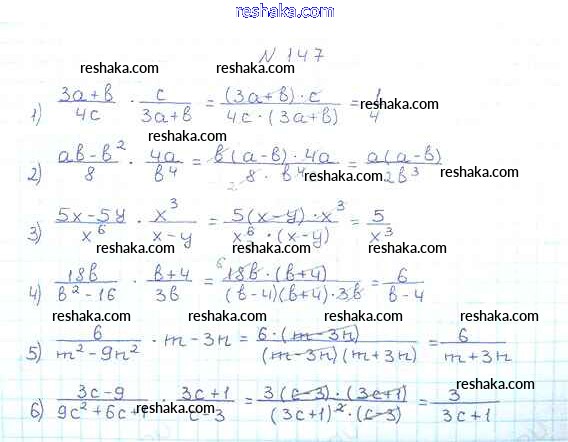 reshaka.com
N 147
reshaka.com reshaka.com reshaka.com
1) (3a+b)/(4c) · c/(3a+b) = ((3a+b)·c)/(4c·(3a+b)) = 1/4
reshaka.com reshaka.com
2) (ab-b²)/8 · (4a)/(b⁴) = (b(a-b)·4a)/(8·b⁴) = (a(a-b))/(2b³)
reshaka.com reshaka.com
3) (5x-5y)/(x⁶) · (x³)/(x-y) = (5(x-y)·x³)/(x⁶·(x-y)) = 5/(x³)
reshaka.com reshaka.com reshaka.com
4) (18b)/(b²-16) · (b+4)/(3b) = (18b·(b+4))/((b-4)(b+4)·3b) = 6/(b-4)
reshaka.com reshaka.com reshaka.com
5) 6/(m²-9n²) · m-3n = (6·(m-3n))/((m-3n)(m+3n)) = 6/(m+3n)
reshaka.com
6) (3c-9)/(9c²+6c+1) · (3c+1)/(c-3) = (3(c-3)·(3c+1))/((3c+1)²·(c-3)) = 3/(3c+1)
reshaka.com reshaka.com reshaka.com